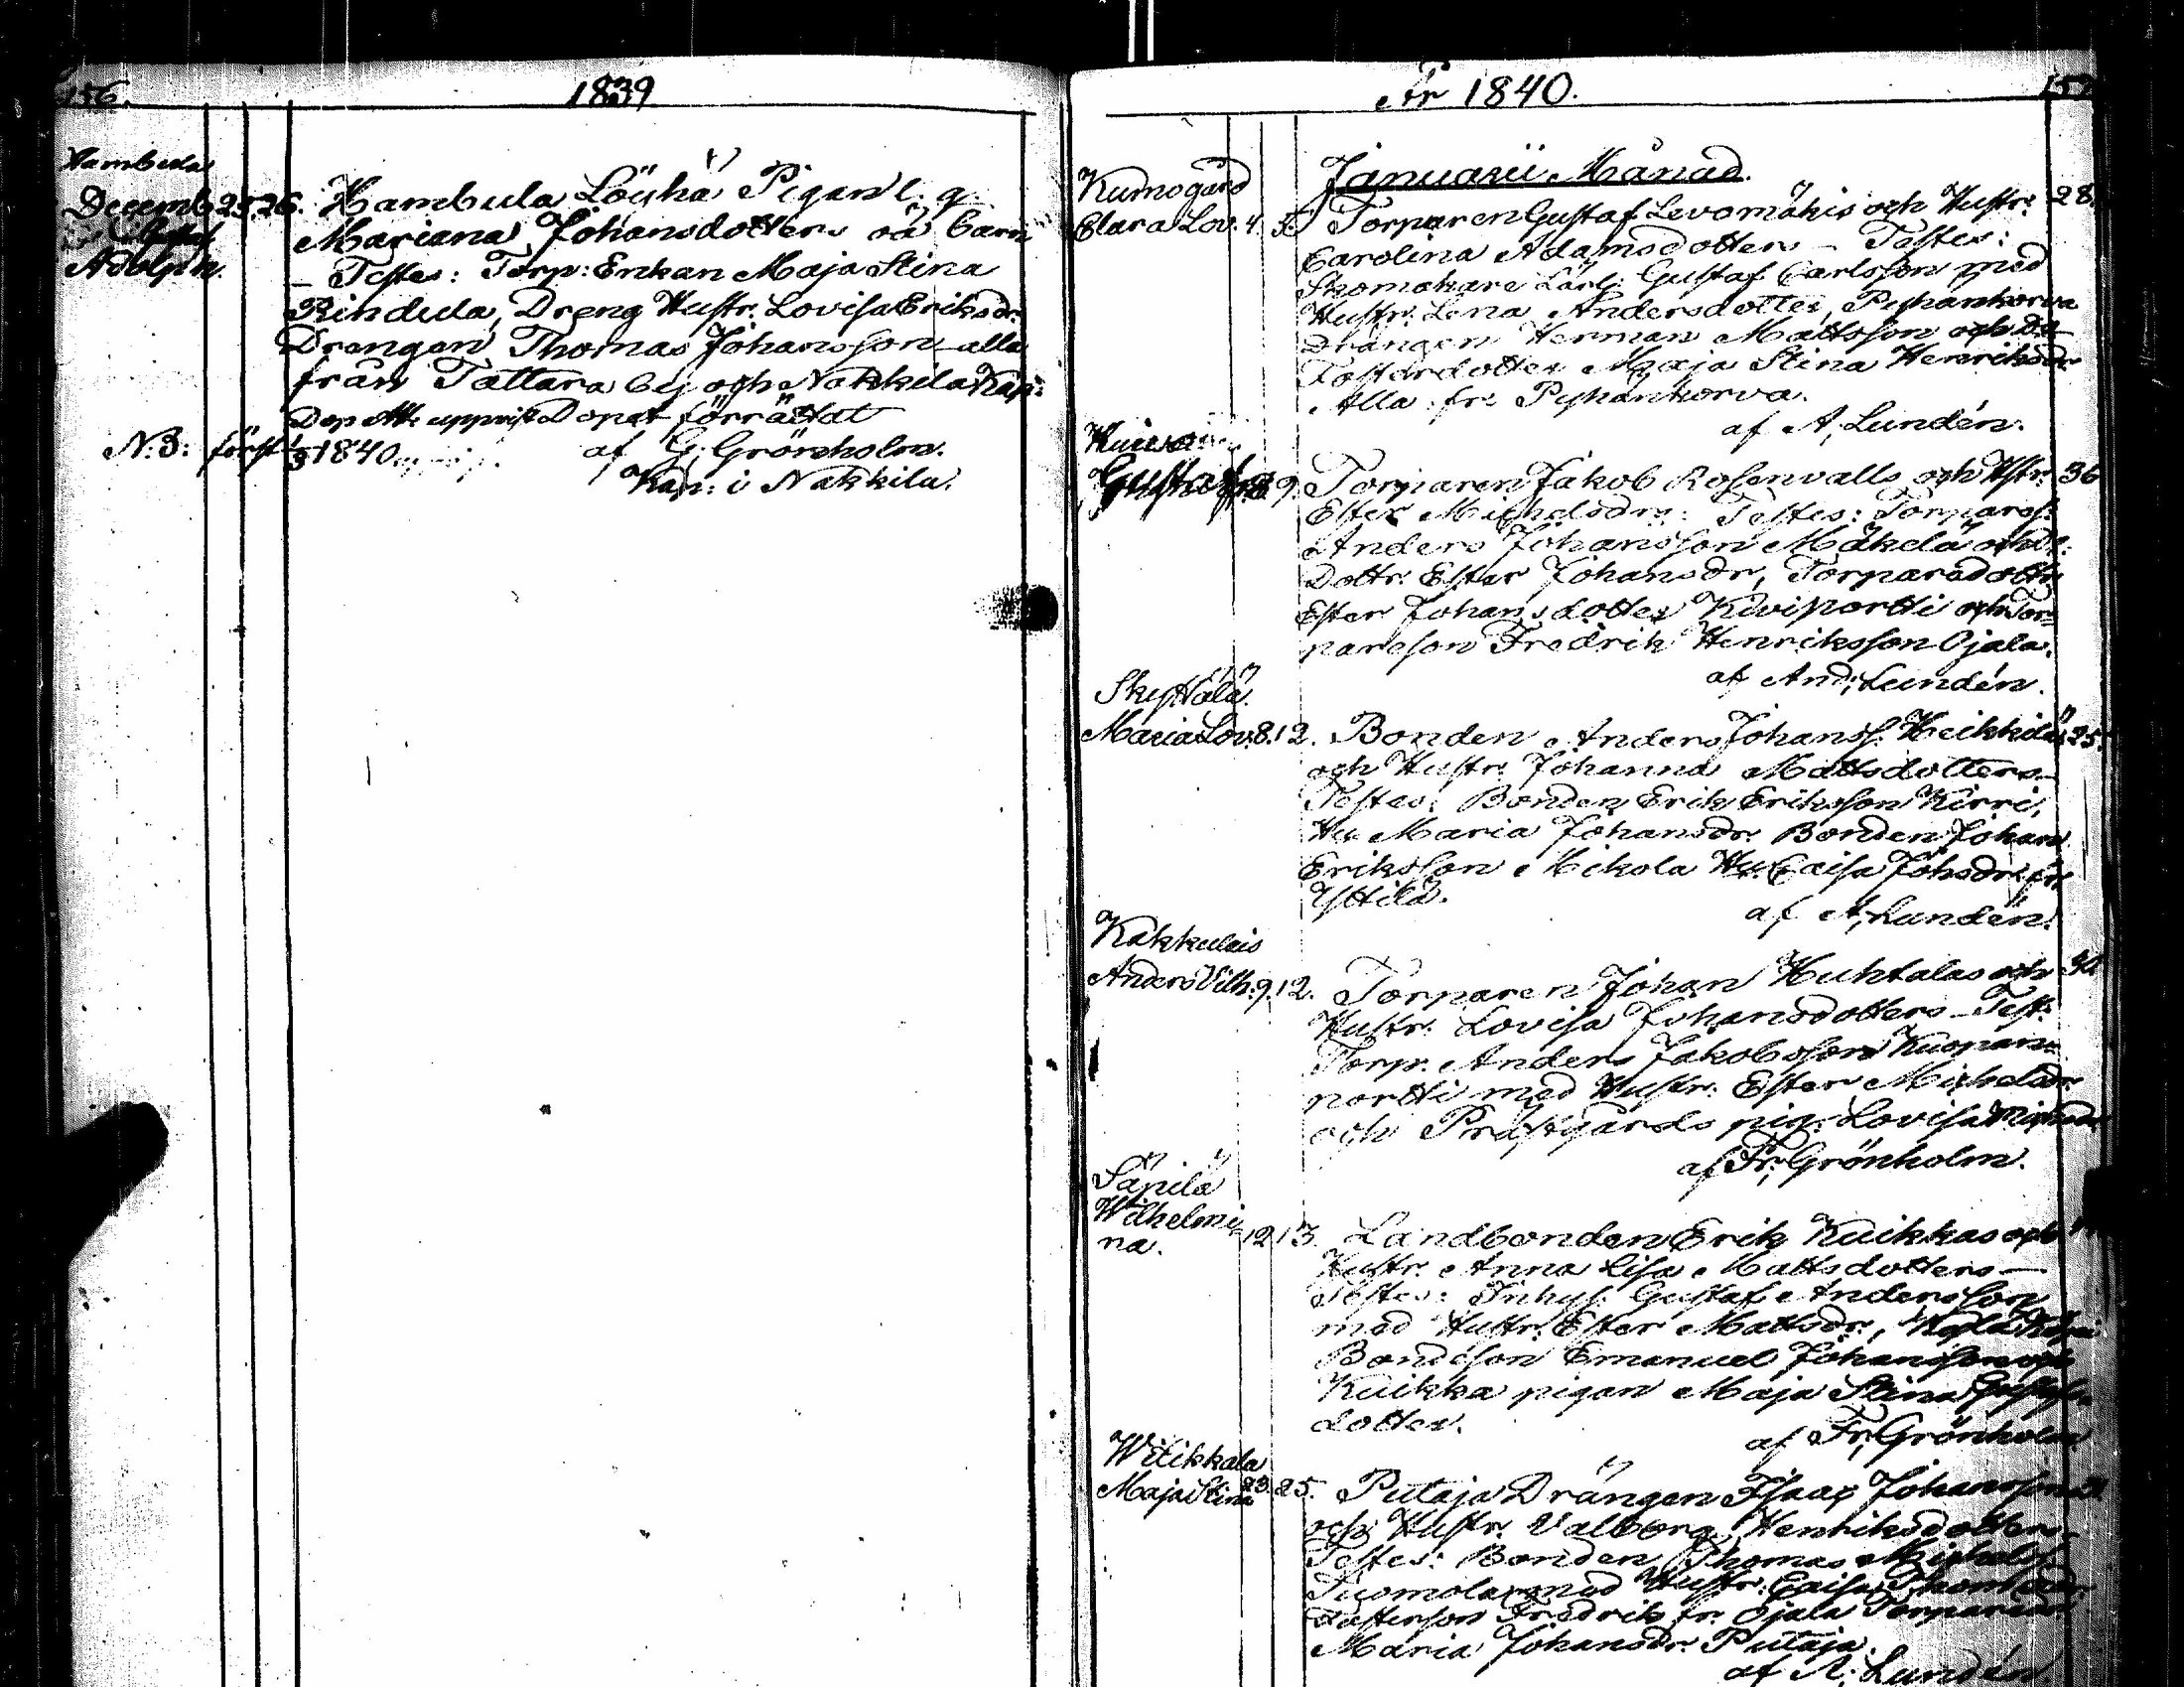 156.
1839
Hambula
Decemb. 25. 26. Hambula Löyhä Pigan l. q.
Gustaf
Adolph.
Mariana Johansdotters oä barn
– Testes: Torp: Enkan Maja Stina
Rindula, Dreng Hustr. Lovisa Eriksdr.
Drengen Thomas Johansson – alla
från Tattara by och Nakkila Kap:
Dop Att: Dopet förrättat
N.B: först 1840. af G. Grönholm.
Kap: i Nakkila.
År 1840.
Januarii Månad.
Kumogård
Clara Lov. 4. 5. Torparen Gustaf Levomäkis och Hustr. 28.
Carolina Adamsdotters – Testes:
Skomakare Lärl: Gustaf Carlsson med
Hustr. Lena Andersdotter, Pyhänkorva
Drängen Herman Mattsson och
Fosterdotter Maja Stina Henriksdr
Alla fr. Pyhänkorva.
af A, Lundén.
Gustaf 9. Torparen Jakob Rosenvalls och Hstr. 36
Ester Michelsdrs: Testes: Torpars:
Anders Johansson Mäkelä och
Dottr. Ester Johansdr, Torparedottr.
Ester Johansdotter Kiviportti och Tor=
pareson Fredrik Henriksson Ojala.
af And, Lundén.
Skyttälä.
Maria Lov. 8. 12. Bonden Anders Johanss. Heikkilä 25.
och Hustr. Johanna Mattsdotters –
Testes: Bonden Erik Eriksson Kirri,
Hu Maria Johansdr. Bonden Johan
Eriksson Mikola Hu Caisa Johsdr. fr.
Yttilä.
af A, Lundén.
Kakkulais
Anders Vilh. 9. 12. Torparen Johan Huhtalas och
Hustr. Lovisa Johansdotters – Test:
Torp. Anders Jakobsson Kuopan=
portti med Hustr. Ester Michelsdr.
och Prästgårds pig. Lovisa
af Fr, Grönholm.
Säpilä
Wilhelmi=
na. 12. 13. Landbonden Erik Kuikkas och
Hustr. Anna Lisa Mattsdotters –
Testes: Inhys: Gustaf Andersson
med Hustr. Ester Mattsdr,
Bondeson Emanuel Johansson och
Kuikka pigan Maja Stina Gustafs=
dotter.
af Fr, Grönholm
Witikkala
Maja Stina 23. 25. Putaja Drängen Isaac Johansson
och Hustr. Valborg Henriksdotters.
Testes: Bonden Thomas Michelss.
Tuomola med Hustr. Caisa Thomasdr.
Fredrik fr. Ojala
Maria Johansdr. Putaja.
af A, Lundén